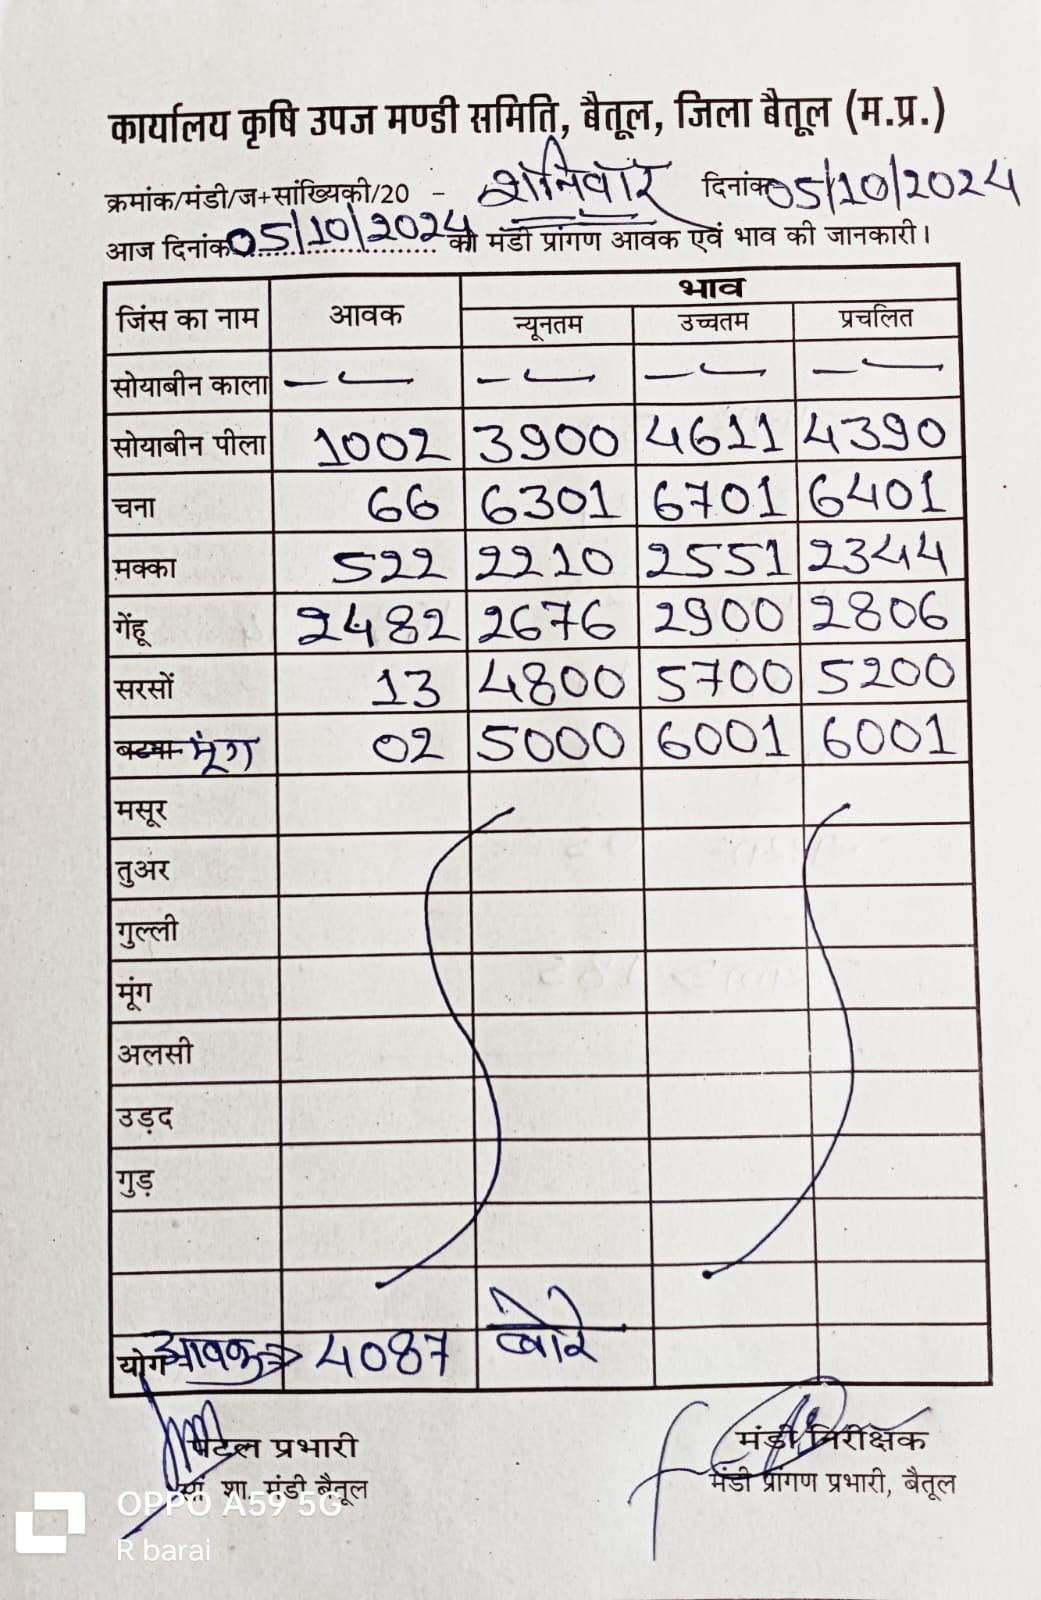 कार्यालय कृषि उपज मण्डी समिति, बैतूल, जिला बैतूल (म.प्र.)
क्रमांक/मंडी/ज+सांख्यिकी/20 - शनिवार दिनांक 05/10/2024
आज दिनांक 05/10/2024 को मंडी प्रांगण आवक एवं भाव की जानकारी।
जिंस का नाम आवक भाव
न्यूनतम उच्चतम प्रचलित
सोयाबीन काला — — — —
सोयाबीन पीला 1002 3900 4611 4390
चना 66 6301 6701 6401
मक्का 522 2210 2551 2344
गेंहू 2482 2676 2900 2806
सरसों 13 4800 5700 5200
मूंग 02 5000 6001 6001
मसूर
तुअर
गुल्ली
मूंग
अलसी
उड़द
गुड़
योग आवक 4087 बोरे
पटल प्रभारी मंडी निरीक्षक
सां. शा. मंडी बैतूल मंडी प्रांगण प्रभारी, बैतूल
OPPO A59 5G
R barai